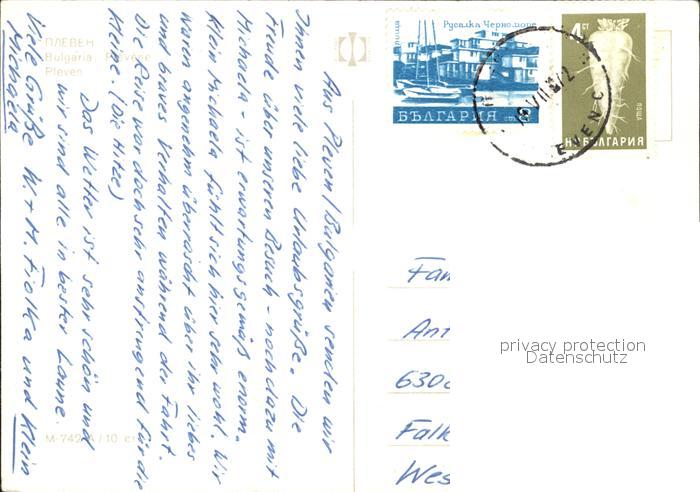 ПЛЕВЕН
Bolgaria, Plévène
Pleven
Aus Pleven/Bulgarien senden wir
Ihnen viele liebe Urlaubsgrüße. Die
Freude über unseren Besuch - noch dazu mit
Michaela - ist erwartungsgemäß enorm.
Klein Michaela fühlt sich hier sehr wohl. Wir
waren angenehm überrascht über ihr liebes
und braves Verhalten während der Fahrt.
Die Reise war doch sehr anstrengend für die
Kleine (Die Hitze)
Das Wetter ist sehr schön und
wir sind alle in bester Laune.
Viele Grüße W. + M. Fiolka und Klein
Michaela
М-742-А/10 ст
Русалка Черноморе
БЪЛГАРИЯ
1 СТ
НР БЪЛГАРИЯ
Fam
Ant
630
Falk
Wes
privacy protection
Datenschutz